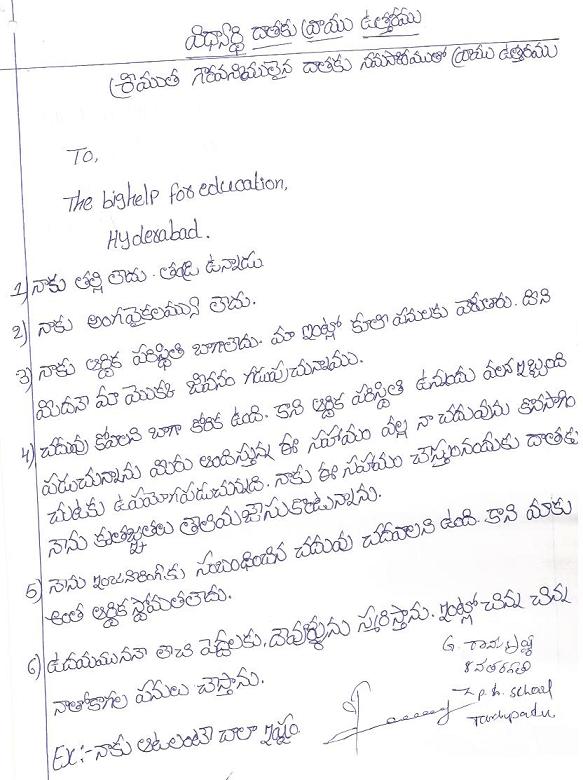 విధ్యార్థి దాతకు వ్రాయు ఉత్తరము
శ్రీయుత గౌరవనియులైన దాతకు నమస్కారముతో వ్రాయు ఉత్తరము
To,
The bighelp for education,
Hyderabad.
1) నాకు తల్లి లేదు. తండ్రి ఉన్నాడు
2) నాకు అంగవైకల్యము లేదు.
3) నాకు ఆర్థిక పరిస్థితి బాగాలేదు. మా ఇంట్లో కూలి పనులకు వెళుతారు. దాని
మిదనే మా యొక్క జీవనం గడుపుచున్నాము.
4) చదువు కోవాలని బాగా కోరిక ఉంది. కాని ఆర్థిక పరిస్థితి ఉన్నందు వలన ఇబ్బంది
పడుచున్నాను మిరు అందిస్తున్న ఈ సహాయం వల్ల నా చదువును కొనసాగిం
చుటకు ఉపయోగపడుచున్నది. నాకు ఈ సహాయం చేస్తున్నందుకు దాతకు
నేను కృతజ్ఞతలు తెలియజేసుకొంటున్నాను.
5) నేను ఇంజనీరింగ్‌కు సంబంధించిన చదువు చదవాలని ఉంది. కాని మాకు
అంత ఆర్థిక స్తోమతలేదు.
6) ఉదయమునే లేచి పెద్దలకు, దేవుళ్ళును స్మరిస్తాను. ఇంట్లో చిన్న చిన్న
నాతోకాగల పనులు చేస్తాను.
Ex:- నాకు ఆటలంటే చాలా ఇష్టం
G.
8వతరగతి
Z.p.h. School